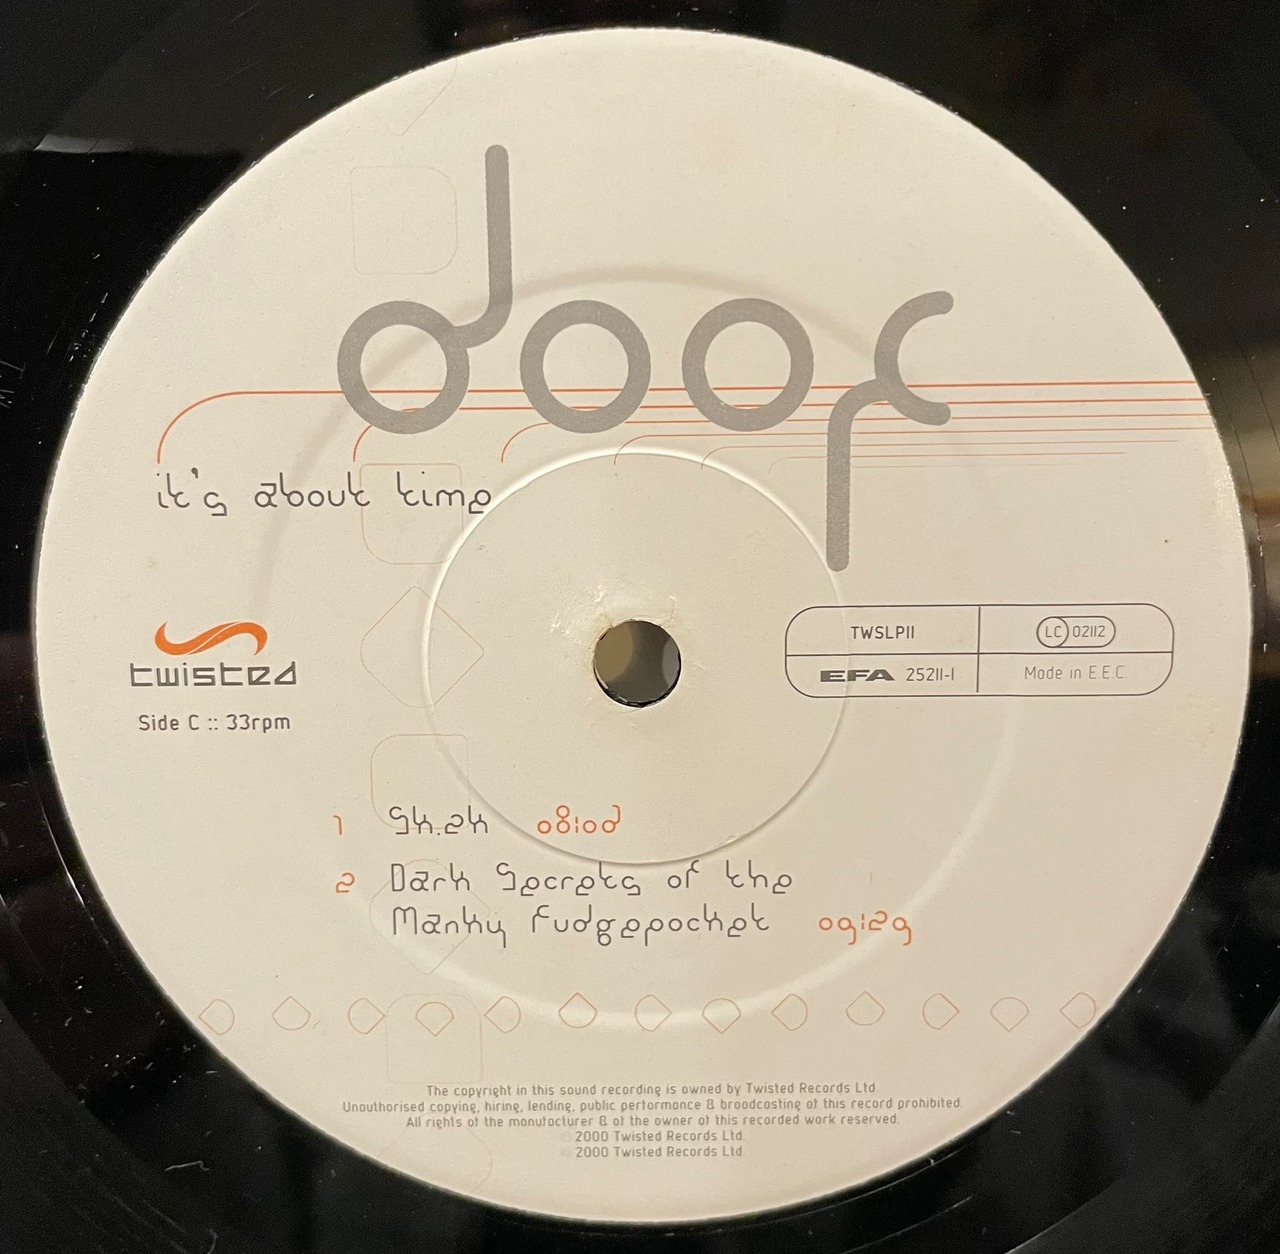 doof
it's about time
twisted
Side C :: 33rpm
TWSLP11
LC 02112
EFA 25211-1
Made in E.E.C
1 08:06
2 Dark Secrets of the
Manky Fudgepocket 09:29
The copyright in this sound recording is owned by Twisted Records Ltd.
Unauthorised copying, hiring, lending, public performance & broadcasting of this record prohibited.
All rights of the manufacturer & of the owner of this recorded work reserved.
2000 Twisted Records Ltd.
2000 Twisted Records Ltd.